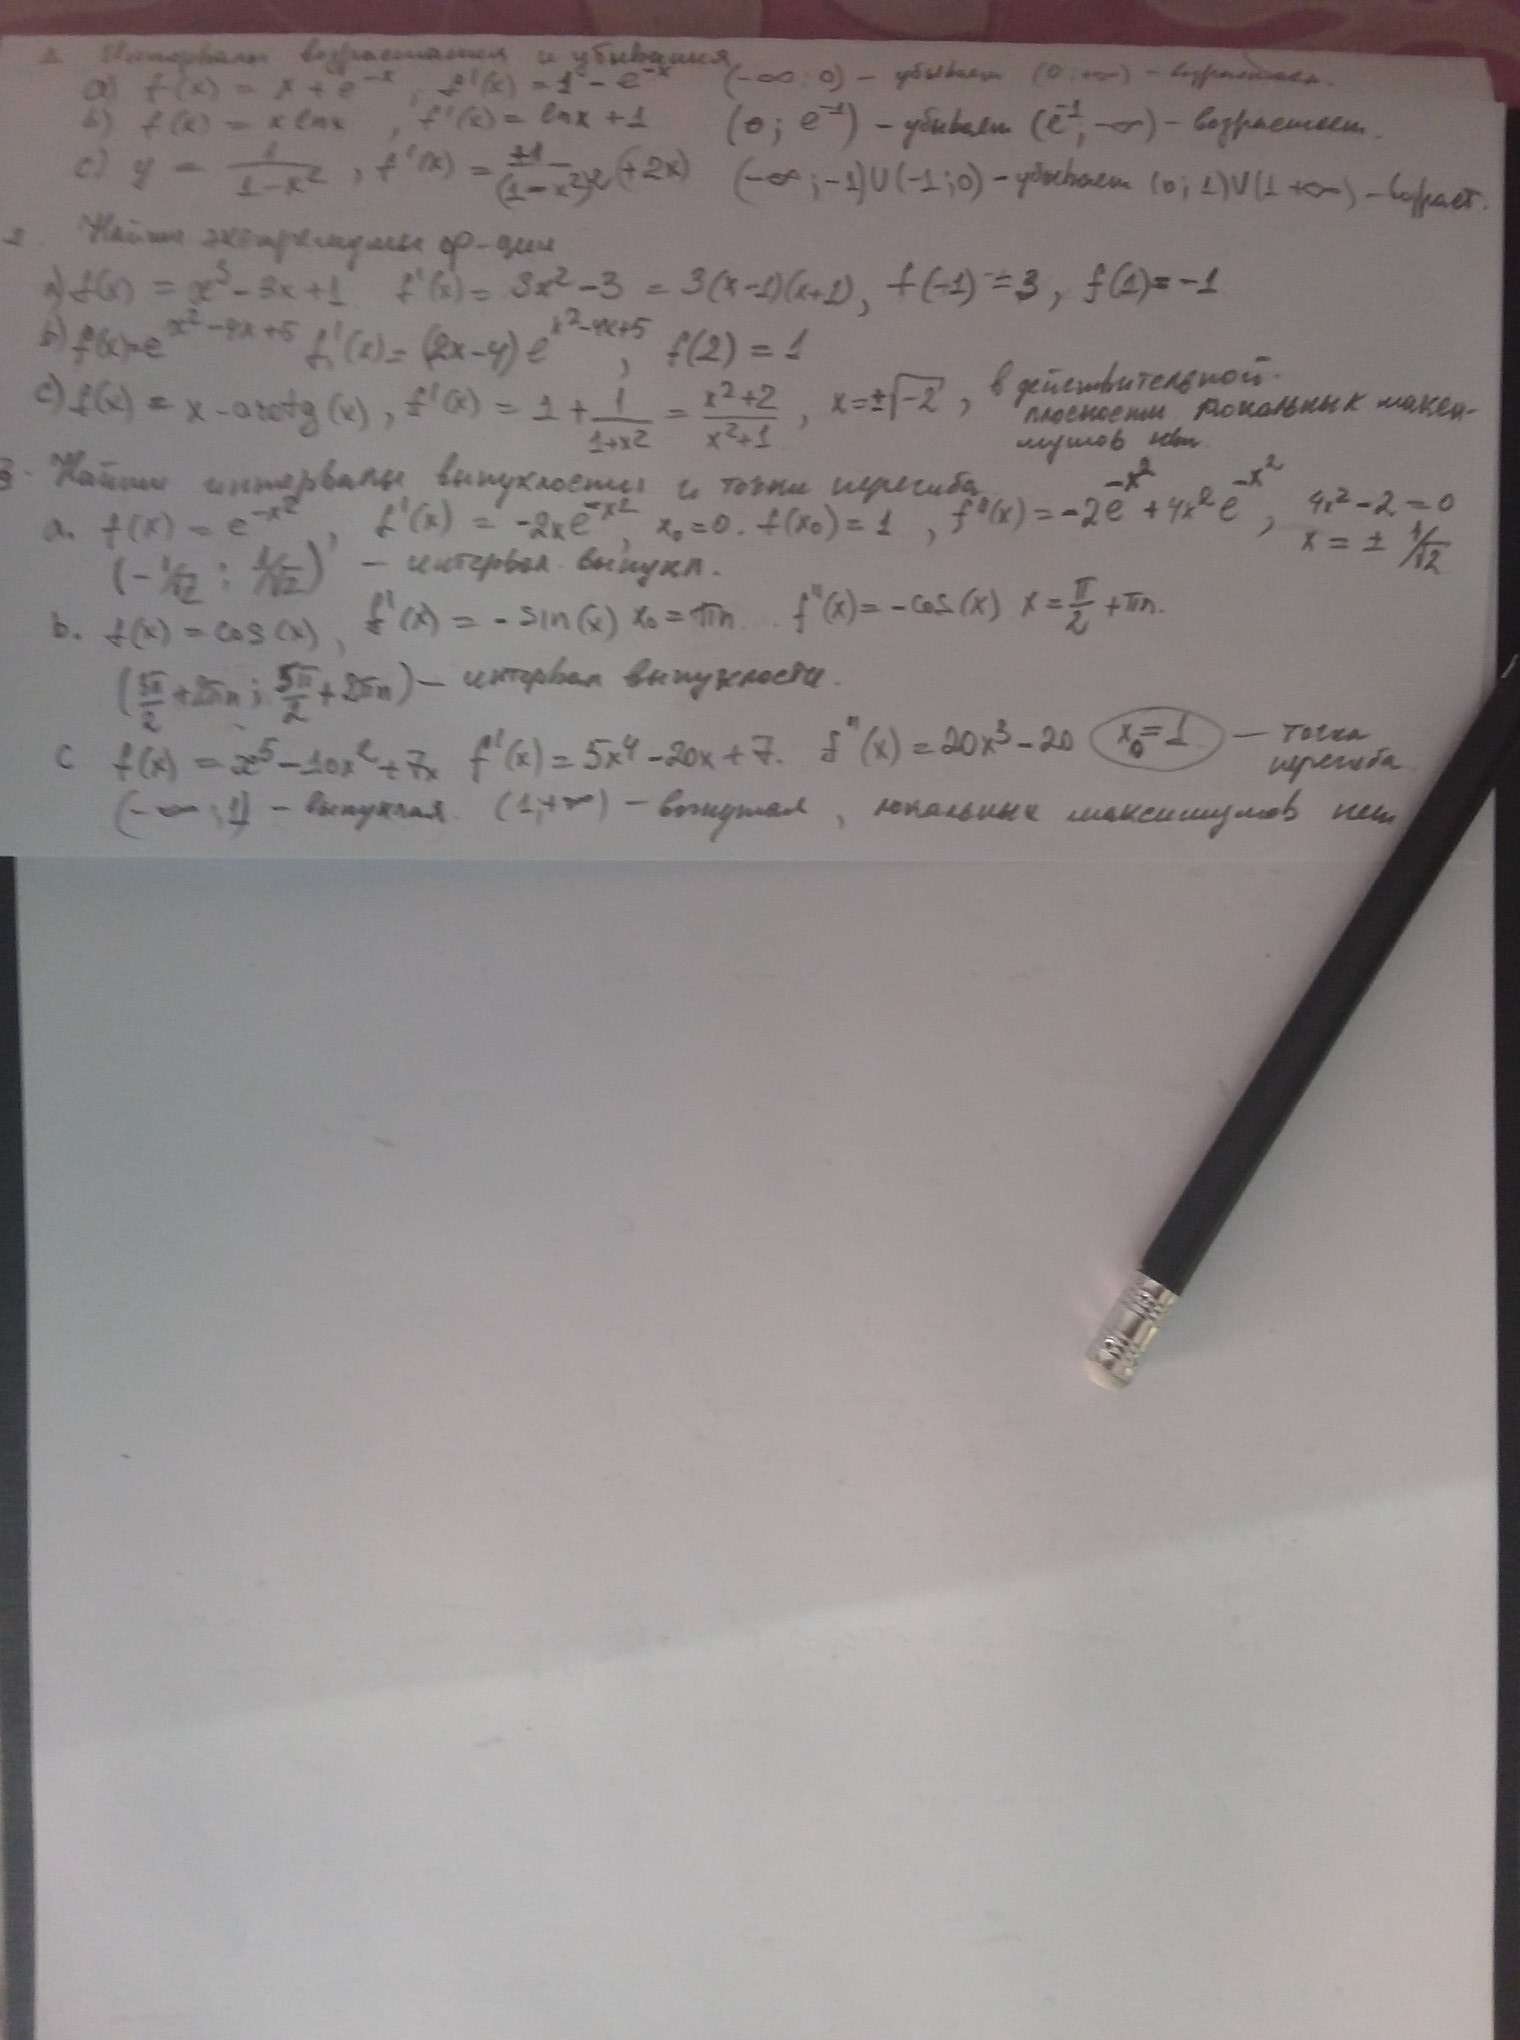 1. Интервалы возрастания и убывания
a) f(x) = x + e^{-x}, f'(x) = 1 - e^{-x} (-∞; 0) - убывает (0; +∞) - возрастает.
b) f(x) = x lnx, f'(x) = lnx + 1 (0; e^{-1}) - убывает (e^{-1}; -∞) - возрастает.
c) y = 1/(1-x^2), f'(x) = +1/(1-x^2)^2 (+2x) (-∞; -1)U(-1; 0) - убывает (0; 1)U(1 +∞) - возраст.
2. Найти экстремумы ф-ции
a) f(x) = x^3 - 3x + 1 f'(x) = 3x^2 - 3 = 3(x-1)(x+1), f(-1) = 3, f(1) = -1
b) f(x) = e^{x^2-4x+5} f'(x) = (2x-4) e^{x^2-4x+5}, f(2) = 1
c) f(x) = x - arctg(x), f'(x) = 1 + 1/(1+x^2) = (x^2+2)/(x^2+1), x = ±√-2, в действительной
плоскости локальных макси-
мумов нет.
3. Найти интервалы выпуклости и точки перегиба
a. f(x) = e^{-x^2}, f'(x) = -2xe^{-x^2}, x₀ = 0. f(x₀) = 1, f''(x) = -2e^{-x^2} + 4x^2 e^{-x^2}, 4x^2 - 2 = 0
x = ± 1/√2
(-1/√2; 1/√2) - интервал выпукл.
b. f(x) = cos(x), f'(x) = -sin(x) x₀ = πn. f''(x) = -cos(x) x = π/2 + πn.
(3π/2 + 2πn; 5π/2 + 2πn) - интервал выпуклости.
c f(x) = x^5 - 10x^2 + 7x f'(x) = 5x^4 - 20x + 7. f''(x) = 20x^3 - 20 x₀ = 1 — точка
перегиба
(-∞; 1] - выпуклая. (1; +∞) - вогнутая, локальных максимумов нет